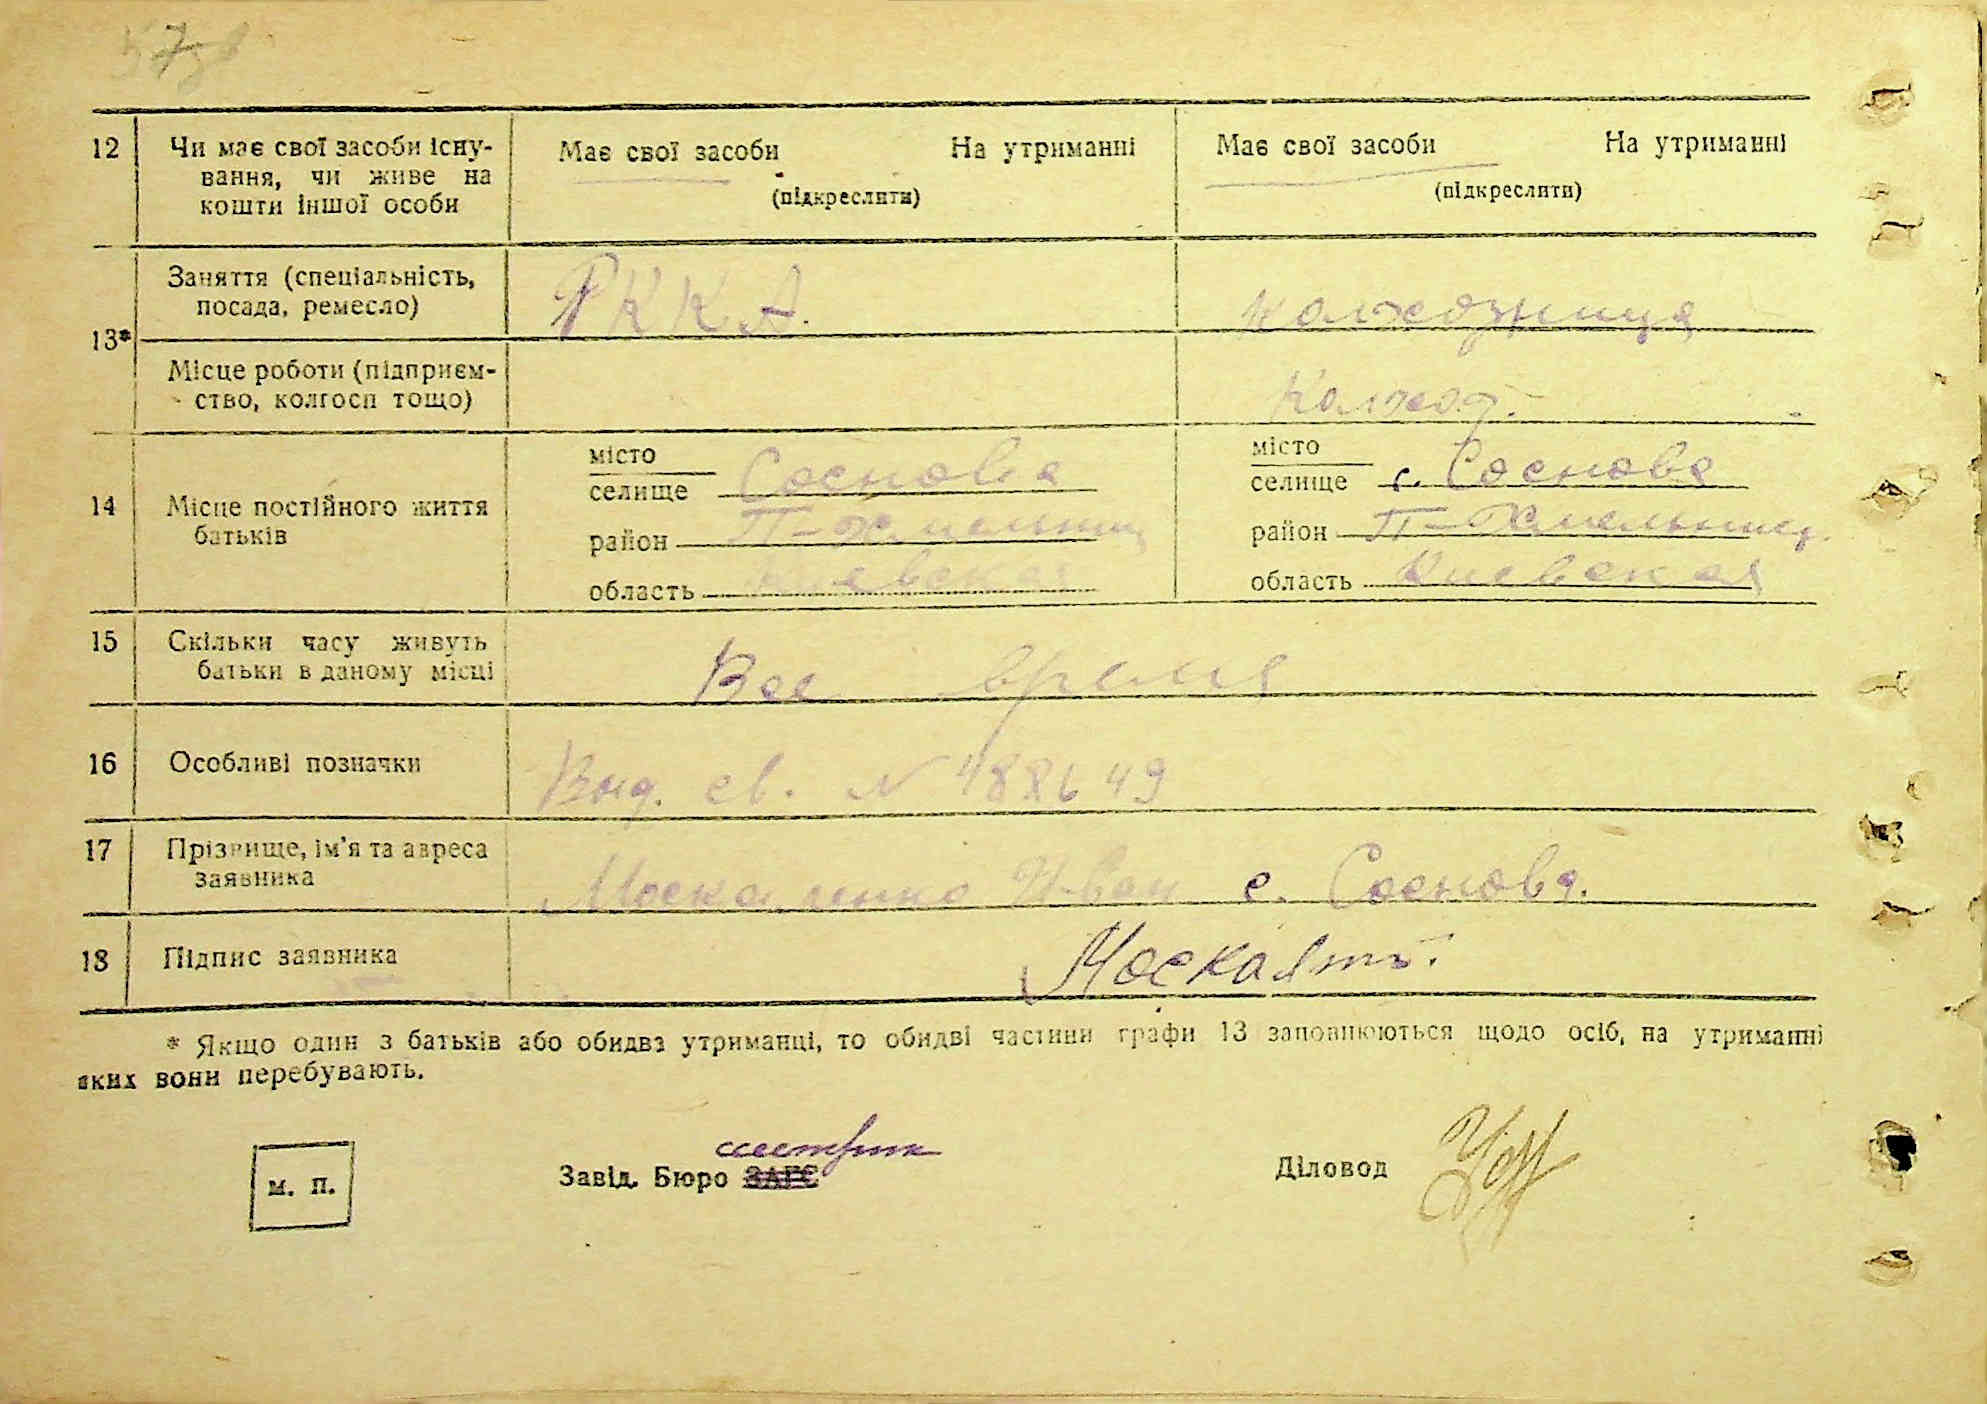 12 Чи має свої засоби існу-
вання, чи живе на
кошти іншої особи
Має свої засоби На утриманні
(підкреслити)
Має свої засоби На утриманні
(підкреслити)
13*
Заняття (спеціальність,
посада, ремесло)
РККА.
колхозница
Місце роботи (підприєм-
ство, колгосп тощо)
Колхоз.
14 Місце постійного життя
батьків
місто
селище Соснова
район П-Хмельниц
область Киевская
місто
селище с. Соснова
район П-Хмельниц.
область Киевская
15 Скільки часу живуть
батьки в даному місці
Все время
16 Особливі позначки
Выд. св. N 488649
17 Прізвище, ім'я та адреса
заявника
Москаленко Иван с. Соснова.
18 Підпис заявника
* Якщо один з батьків або обидва утриманці, то обидві частини графи 13 заповнюються щодо осіб, на утриманні
яких вони перебувають.
м. п.
Завід. Бюро ЗАГС
Діловод